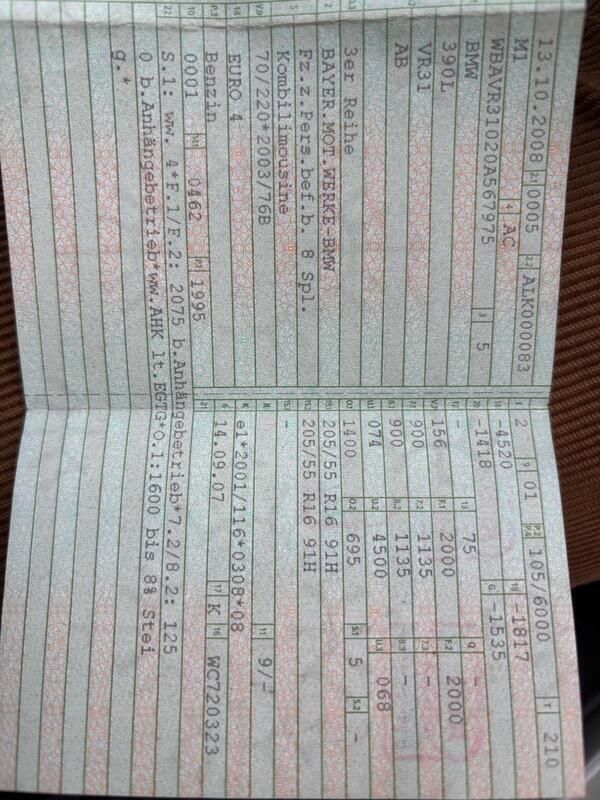 13.10.2008 2.1 0005 2.2 ALK000083
M1 4 AC
WBAVR31020A567975 3 5
BMW
390L
VR31
AB
3er Reihe
2 BAYER.MOT.WERKE-BMW
5 Fz.z.Pers.bef.b. 8 Spl.
Kombilimousine
V.9 70/220*2003/76B
14 EURO 4
P.3 Benzin
10 0001 14.1 0462 P.1 1995
L 2 9 01 P.2 P.4 105/6000 T 210
18 -4520 19 -1817
20 -1418 G -1535
12 - 13 75 Q -
V.7 156 F.1 2000 F.2 2000
7.1 900 7.2 1135 7.3 -
8.1 900 8.2 1135 8.3 -
U.1 074 U.2 4500 U.3 068
O.1 1400 O.2 695 S.1 5 S.2 -
15.1 205/55 R16 91H
15.2 205/55 R16 91H
15.3 -
R 11 9/-
K e1*2001/116*0308*08
6 14.09.07 17 K 16 WC720323
21
22 S.1: ww. 4*F.1/F.2: 2075 b.Anhängebetrieb*7.2/8.2: 125
0 b.Anhängebetrieb*ww.AHK lt.EGTG*O.1:1600 bis 8% Stei
g.*